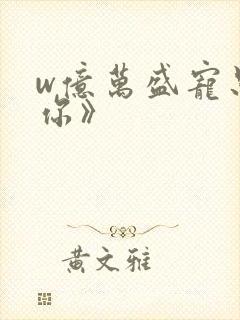 w億萬盛寵
你》
黃文雅